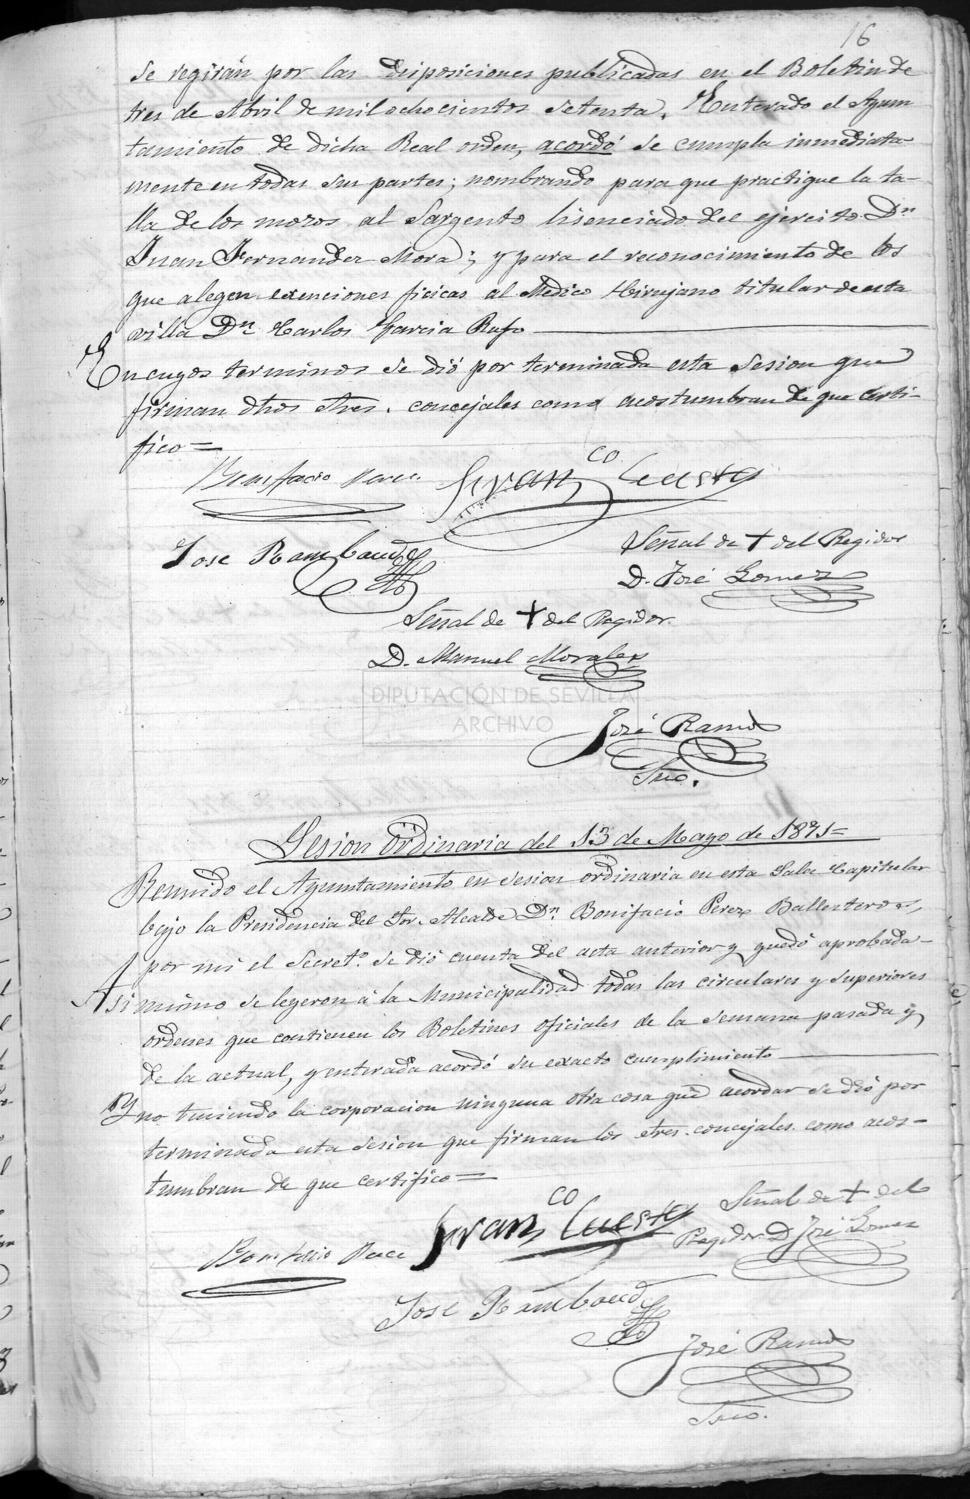 16
se regirán por las disposiciones publicadas en el Boletin de
tres de Abril de mil ochocientos setenta. Enterado el Ayun-
tamiento de dicha Real orden, acordó se cumpla inmediata
mente en todas sus partes; nombrando para que practique la ta-
lla de los mozos al Sargento lisenciado del ejercito Dn
Juan Fernandez Mora; y para el reconocimiento de los
que alegen exenciones ficicas al Medico Cirujano titular de esta
villa Dn Carlos Garcia Rufo
En cuyos terminos se dió por terminada esta sesion que
firman dhos Sres. concejales como acostumbran de que certi-
fico=
Bonifacio Perez Franco Cuesta
Jose Rambaud
Señal de + del Regidor
D. José Gomez
Señal de + del Regidor
D. Manuel Morales
DIPUTACIÓN DE SEVILLA
ARCHIVO
José Ramos
Srio.
Sesion ordinaria del 13 de Mayo de 1871=
Reunido el Ayuntamiento en sesion ordinaria en esta Sala Capitular
bajo la Presidencia del Sor. Alcalde Dn. Bonifacio Perez Ballesteros,
por mi el Secreto. se dió cuenta del acta anterior y quedó aprobada-
Asi mismo se leyeron á la Municipalidad todas las circulares y superiores
ordenes que contienen los Boletines oficiales de la semana pasada y
de la actual, y enterada acordó su exacto cumplimiento
Y no teniendo la corporacion ninguna otra cosa que acordar se dió por
terminada esta sesion que firman los Sres. concejales como acos-
tumbran de que certifico=
Bonifacio Perez Franco Cuesta
Señal de + del
Regidor D José Gomez
Jose Rambaud
José Ramos
Srio.